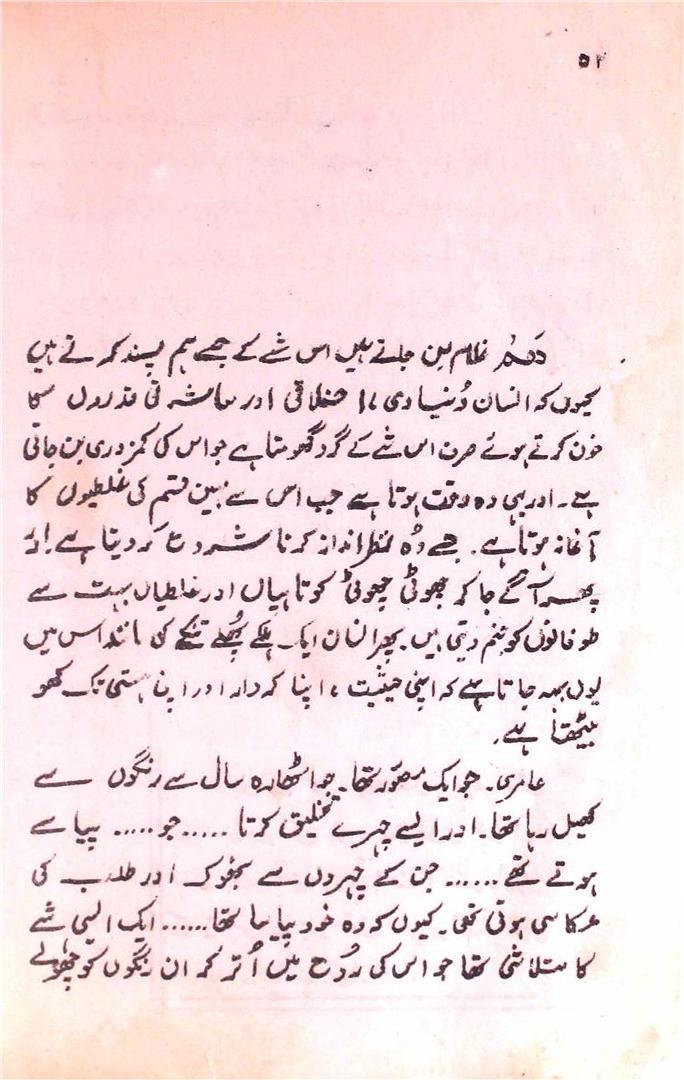 ۵۲
ہم غلام بن جاتے ہیں اس شے کے جسے ہم پسند کرتے ہیں
کیوں کہ انسان دُنیاوی، اخلاقی اور معاشرتی قدروں کا
خون کرتے ہوئے صرف اس شے کے گرد گھومتا ہے جو اس کی کمزوری بن جاتی
ہے۔ اور یہی وہ وقت ہوتا ہے جب اس سے نہیں قسم کی غلطیوں کا
آغاز ہوتا ہے۔ جسے وُہ نظر انداز کرنا شروع کر دیتا ہے اور
پھر آگے جا کر چھوٹی چھوٹی کوتاہیاں اور غلطیاں بہت سے
طوفانوں کو جنم دیتی ہیں۔ پھر انسان ایک ہلکے پھُلکے تنکے کی مانند اس میں
یوں بہہ جاتا ہے کہ اپنی حیثیت، اپنا کردار اور اپنی ہستی تک کھو
بیٹھتا ہے۔
عامری۔ جو ایک مصوّر تھا۔ جو اٹھارہ سال سے رنگوں سے
کھیل رہا تھا۔ اور ایسے چہرے تخلیق کرتا ..... جو ..... پیاسے
ہوتے تھے ...... جن کے چہروں سے بھوک اور طلب کی
عکاسی ہوتی تھی۔ کیوں کہ وہ خود پیاسا تھا ...... ایک ایسی شے
کا متلاشی تھا جو اس کی رُوح میں اُتر کر ان رنگوں کو چھولے